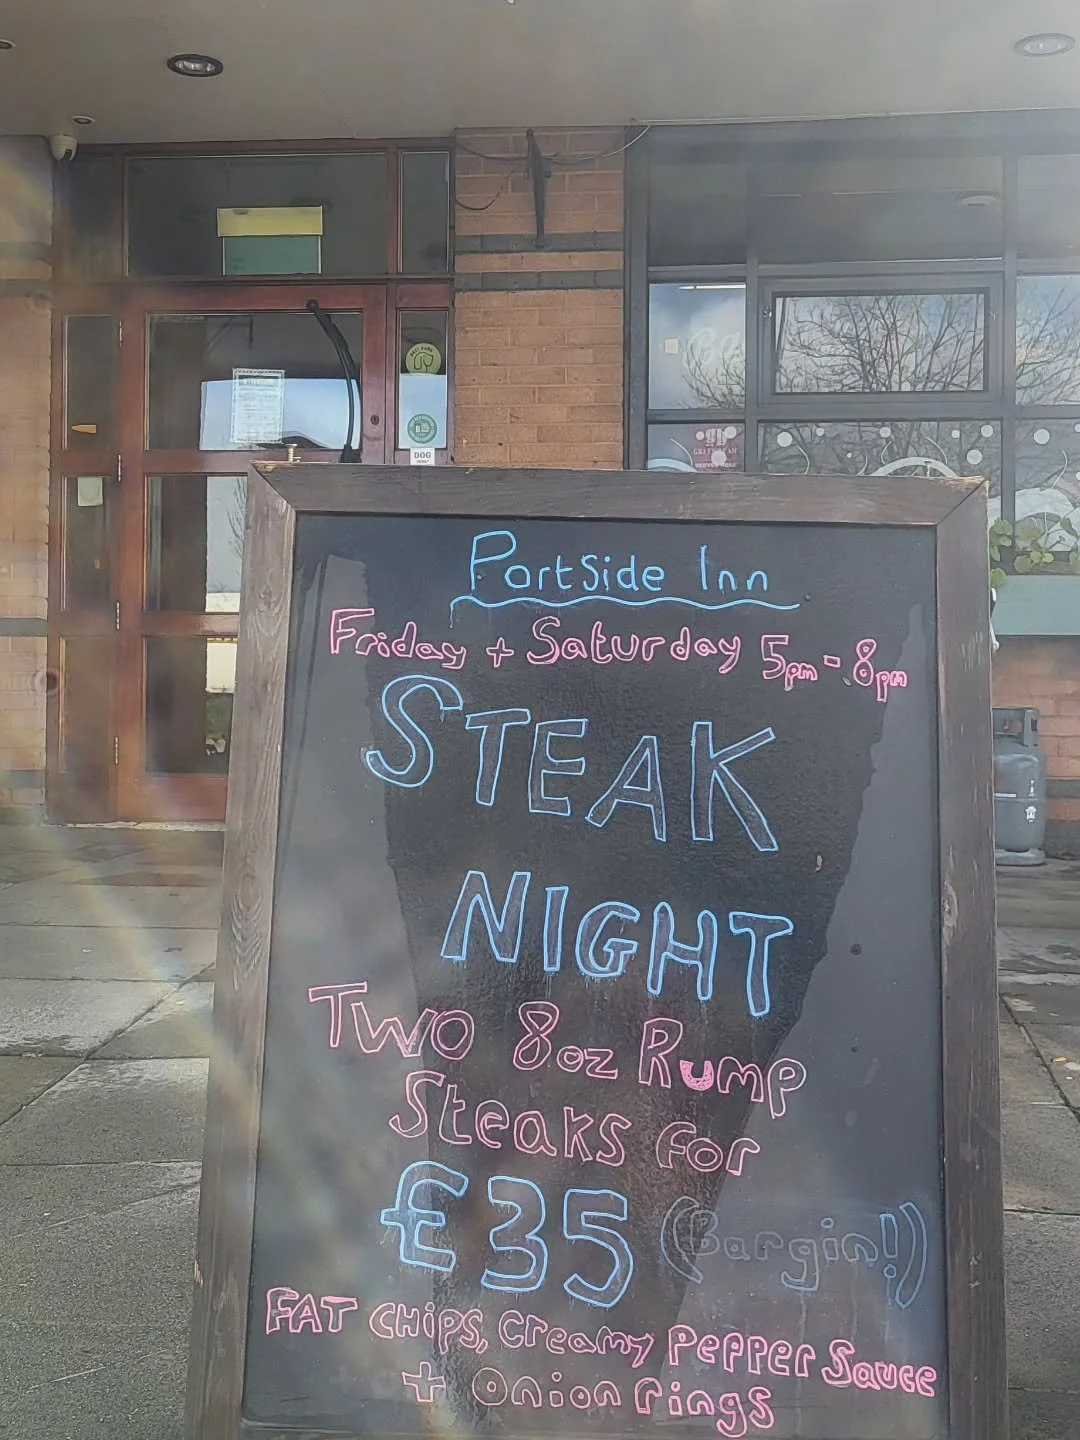 DOG
Portside Inn
Friday + Saturday 5pm - 8pm
STEAK
NIGHT
Two 8oz Rump
Steaks for
£35 (Bargin!)
FAT CHIPS, Creamy Pepper Sauce
+ Onion Rings